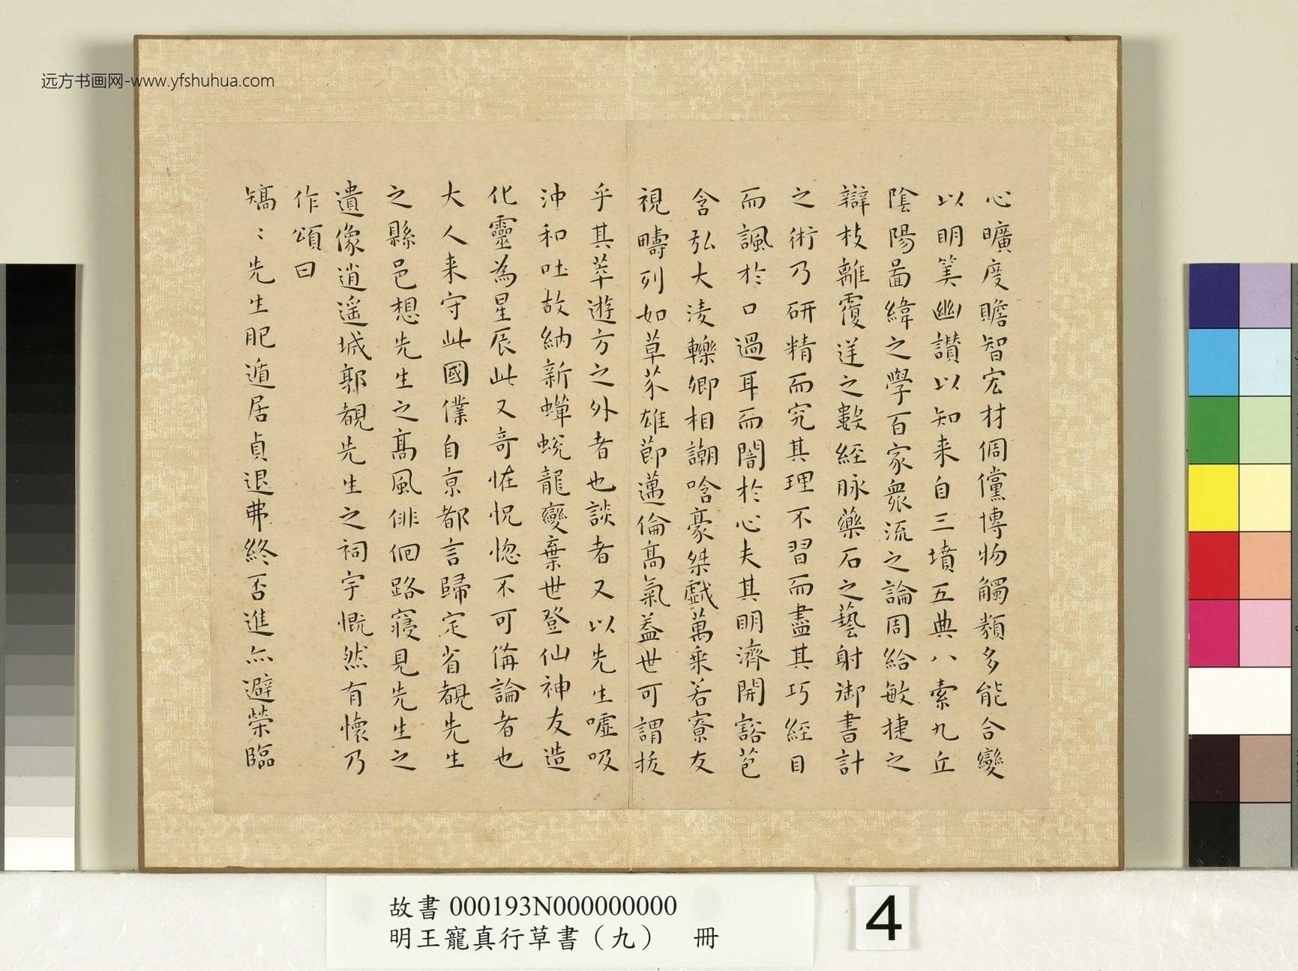 远方书画网-www.yfshuhua.com
心曠度贍智宏材倜儻博物觸類多能合變
以明筭幽讚以知来自三墳五典八索九丘
陰陽啚緯之學百家衆流之論周給敏捷之
辯枝離覆逆之數經脉藥石之藝射御書計
之術乃研精而究其理不習而盡其巧經目
而諷於口過耳而闇於心夫其明濟開豁苞
含弘大淩轢卿相謿哈豪桀戲萬乗若寮友
視疇列如草芥雄莭邁倫髙氣葢世可謂拔
乎其萃遊方之外者也談者又以先生嘘吸
沖和吐故納新蟬蛻龍變棄世登仙神友造
化靈為星辰此又奇恠怳惚不可備論者也
大人来守此國僕自亰都言歸定省覩先生
之縣邑想先生之髙風徘徊路寢見先生之
遺像逍遥城郭覩先生之祠宇慨然有懷乃
作頌曰
矯〻先生肥遁居貞退弗終否進亦避榮臨
故書 000193N000000000
明王寵真行草書（九） 冊
4